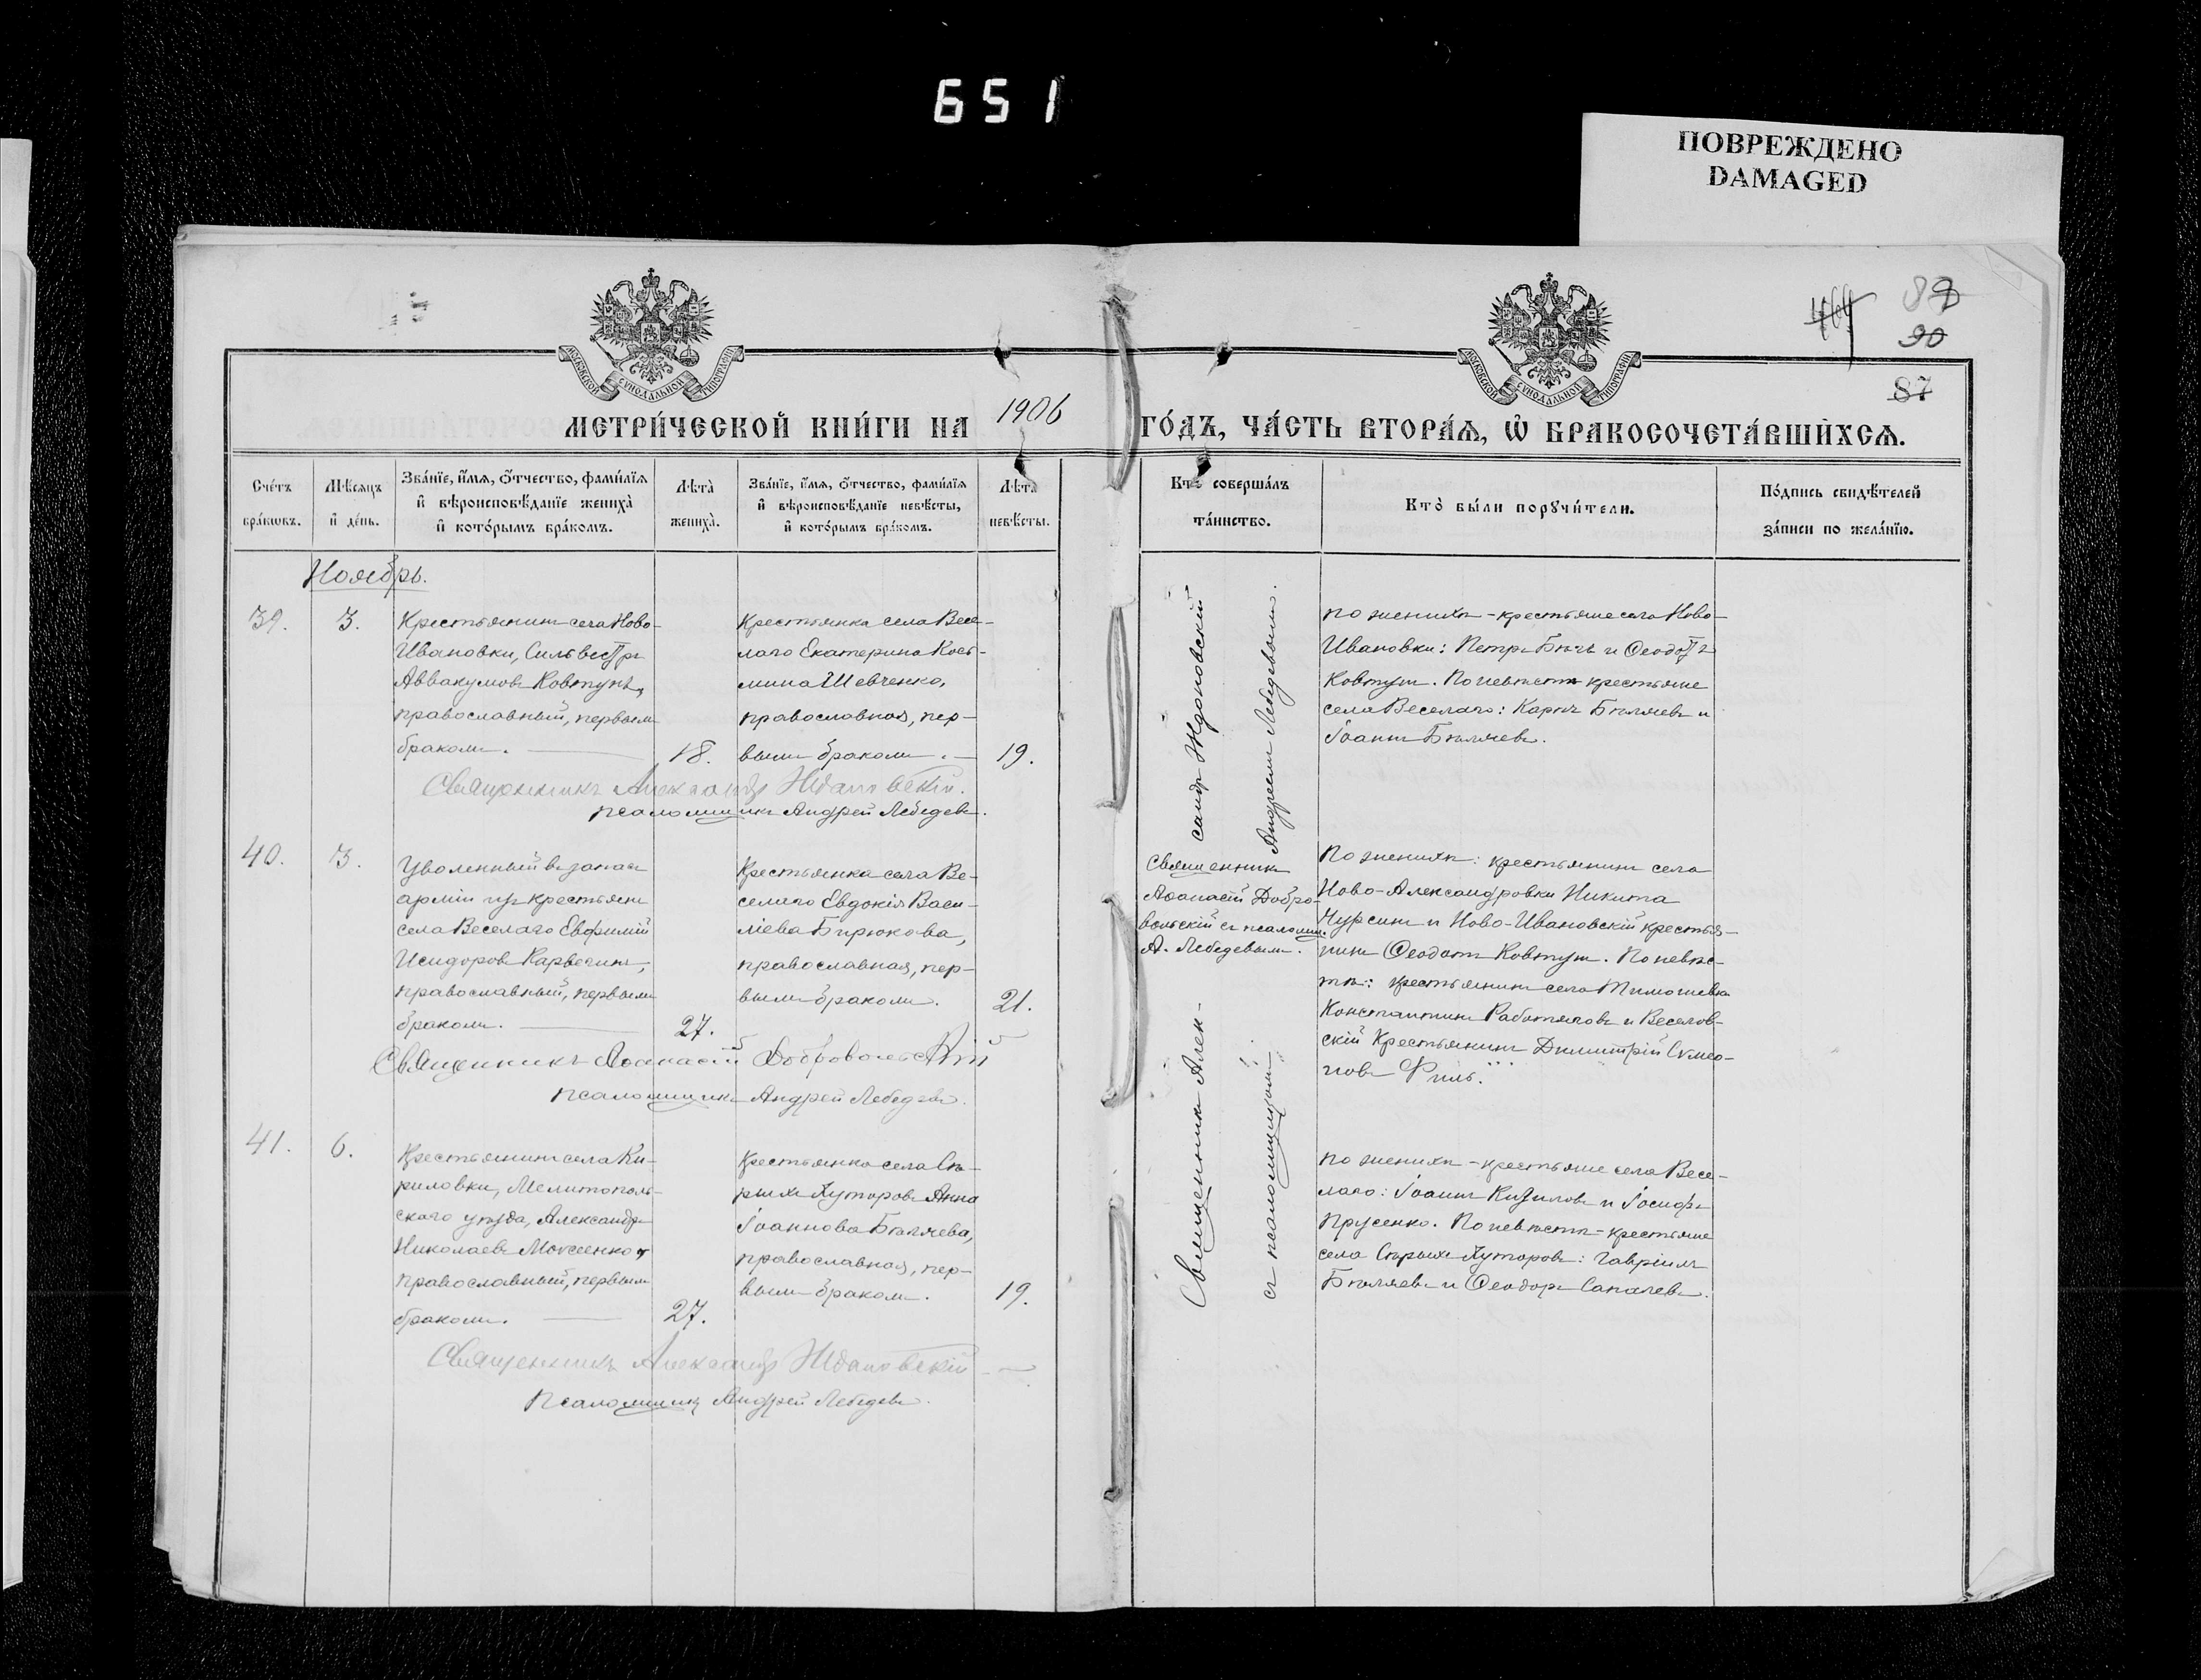 651
ПОВРЕЖДЕНО
DAMAGED
МОСКОВСКОЙ СѴНОДАЛЬНОЙ ТИПОГРАФІИ
МОСКОВСКОЙ СѴНОДАЛЬНОЙ ТИПОГРАФІИ
90
87
МЕТРИ́ЧЕСКОЙ КНИ́ГИ НА 1906 ГО́ДЪ, ЧА́СТЬ ВТОРА́Ѧ, Ѡ҆ БРАКОСОЧЕТА́ВШИХСѦ.
Сче́тъ
бра́кѡвъ.
Мѣ́сѧцъ
и҆ де́нь.
Зва́нїе, и҆́мѧ, ѻ҆́тчество, фами́лїѧ
и҆ вѣроисповѣ́данїе жениха̀
и҆ кото́рымъ бра́комъ.
Лѣта̀
жениха̀.
Зва́нїе, и҆́мѧ, ѻ҆́тчество, фами́лїѧ
и҆ вѣроисповѣ́данїе невѣ́сты,
и҆ кото́рымъ бра́комъ.
Лѣта̀
невѣ́сты.
Кто̀ соверша́лъ
та́инство.
Кто̀ бы́ли порꙋчи́тели.
По́дпись свидѣ́телей
за́писи по жела́нїю.
Ноябрь.
39.
3.
Крестьянинъ села Ново-
Ивановки, Сильвестръ
Аввакумовъ Ковтунъ,
православный, первымъ
бракомъ.
18.
Крестьянка села Весе-
лаго Екатерина Косъ-
мина Шевченко,
православная, пер-
вымъ бракомъ.
19.
по женихѣ - крестьяне села Ново-
Ивановки: Петръ Бычь и Ѳеодотъ
Ковтунъ. По невѣстѣ крестьяне
села Веселаго: Карпъ Бѣляевъ и
Іоаннъ Бѣляевъ.
Священникъ Александръ Ждановскій.
псаломщикъ Андрей Лебедевъ.
40.
3.
Уволенный въ запасъ
арміи изъ крестьянъ
села Веселаго Евфимій
Исидоровъ Карвечинъ,
православный, первымъ
бракомъ.
27.
Крестьянка села Ве-
селаго Евдокія Васи-
ліева Бирюкова,
православная, пер-
вымъ бракомъ.
21.
Священникъ
Аѳанасій Добро-
вольскій съ псаломщ.
А. Лебедевымъ.
По женихѣ: крестьянинъ села
Ново-Александровки Никита
Чурсинъ и Ново-Ивановскій крестья-
нинъ Ѳеодотъ Ковтунъ. По невѣс-
тѣ: крестьянинъ села Тимошевки
Константинъ Работяговъ и Веселов-
скій Крестьянинъ Димитрій Симео-
новъ Филь.
Священникъ Аѳанасій Добровольскій
псаломщикъ Андрей Лебедевъ.
41.
6.
Крестьянинъ села Ки-
риловки, Мелитополь-
скаго уѣзда, Александръ
Николаевъ Моисеенко,
православный, первымъ
бракомъ.
27.
Крестьянка села Сѣ-
рыхъ Хуторовъ Анна
Іоаннова Бѣляева,
православная, пер-
вымъ бракомъ.
19.
Священникъ Алек-
сандръ Ждановскій
съ псаломщикомъ
Андреемъ Лебедевымъ.
по женихѣ - крестьяне села Весе-
лаго: Іоаннъ Кизиловъ и Іосифъ
Прусенко. По невѣстѣ - крестьяне
села Сѣрыхъ Хуторовъ: Гавріилъ
Бѣляевъ и Ѳеодоръ Сапачевъ.
Священникъ Александръ Ждановскій
Псаломщикъ Андрей Лебедевъ.